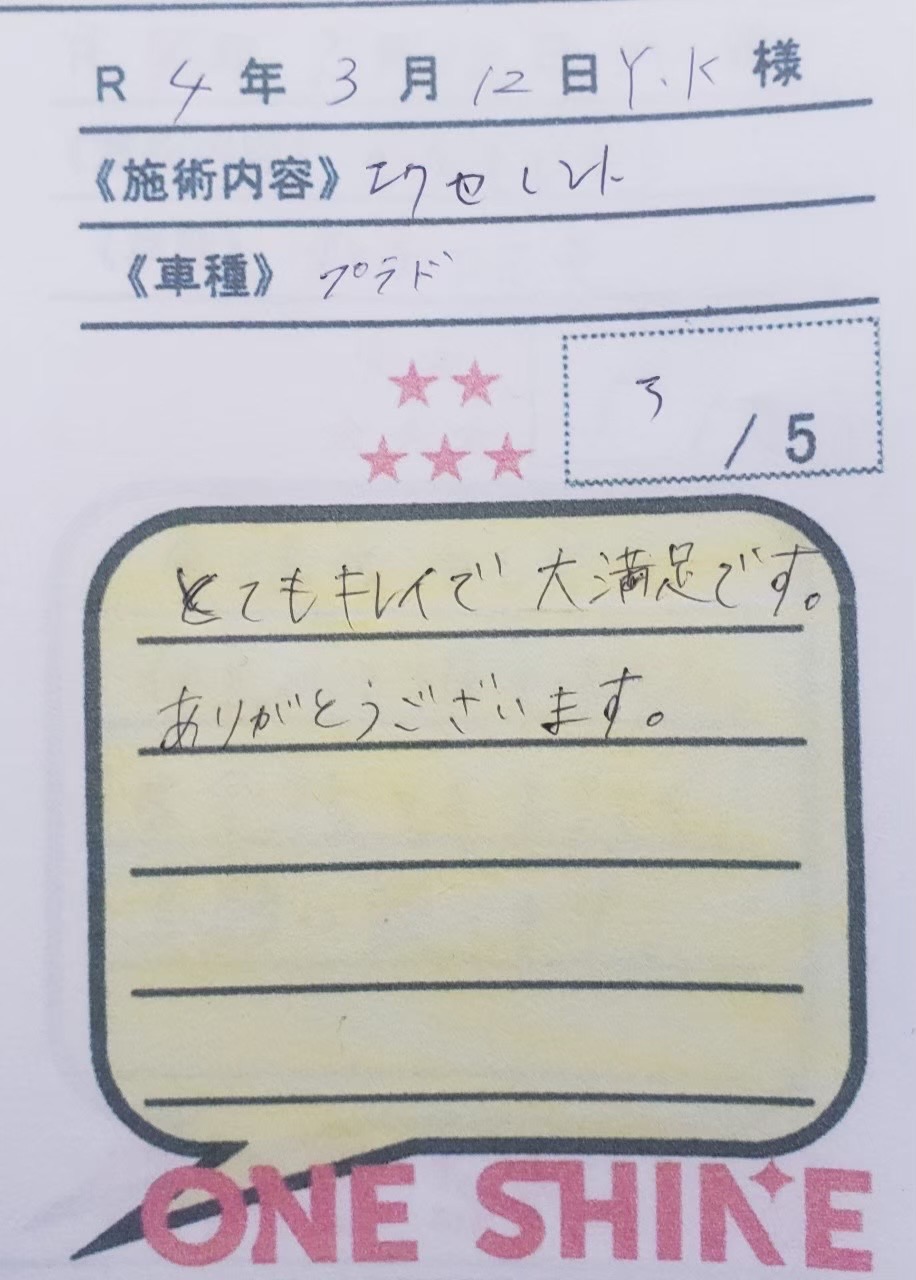 R 4年 3月 12日 Y.K 様
《施術内容》エクセレント
《車種》プラド
3 / 5
とてもキレイで大満足です。
ありがとうございます。
ONE SHINE